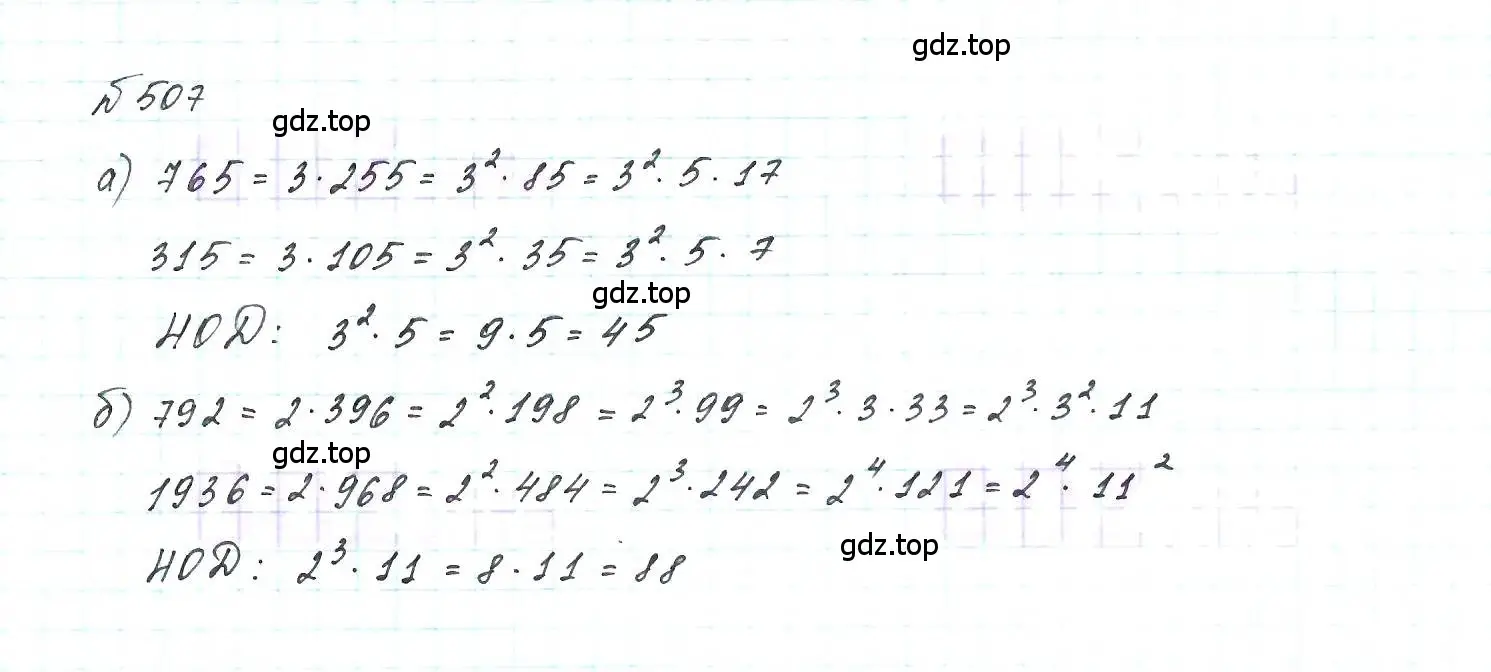 gdz.top
№ 507
gdz.top
а) 765 = 3·255 = 3²·85 = 3²·5·17
315 = 3·105 = 3²·35 = 3²·5·7
gdz.top
НОД: 3²·5 = 9·5 = 45
б) 792 = 2·396 = 2²·198 = 2³·99 = 2³·3·33 = 2³·3²·11
gdz.top
1936 = 2·968 = 2²·484 = 2³·242 = 2⁴·121 = 2⁴·11²
gdz.top
НОД: 2³·11 = 8·11 = 88